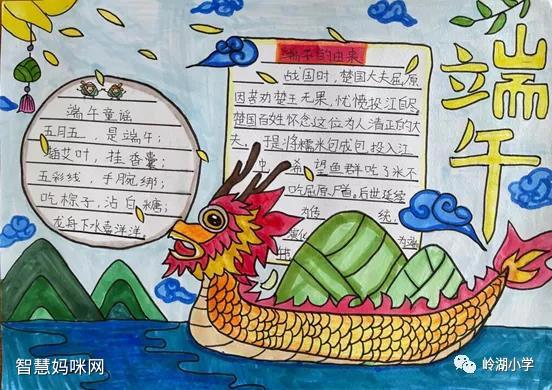 端午
端午童谣
五月五，是端午；
插艾叶，挂香囊；
五彩线，手腕绑；
吃粽子，沾白糖；
龙舟下水喜洋洋。
端午的由来
战国时，楚国大夫屈原
因苦劝楚王无果，忧愤投江自尽
楚国百姓怀念这位为人清正的大
夫，于是将糯米包成包，投入江
中，希望鱼群吃了米不
吃屈原尸首。后世延续
为传统，
智慧妈咪网
岭湖小学